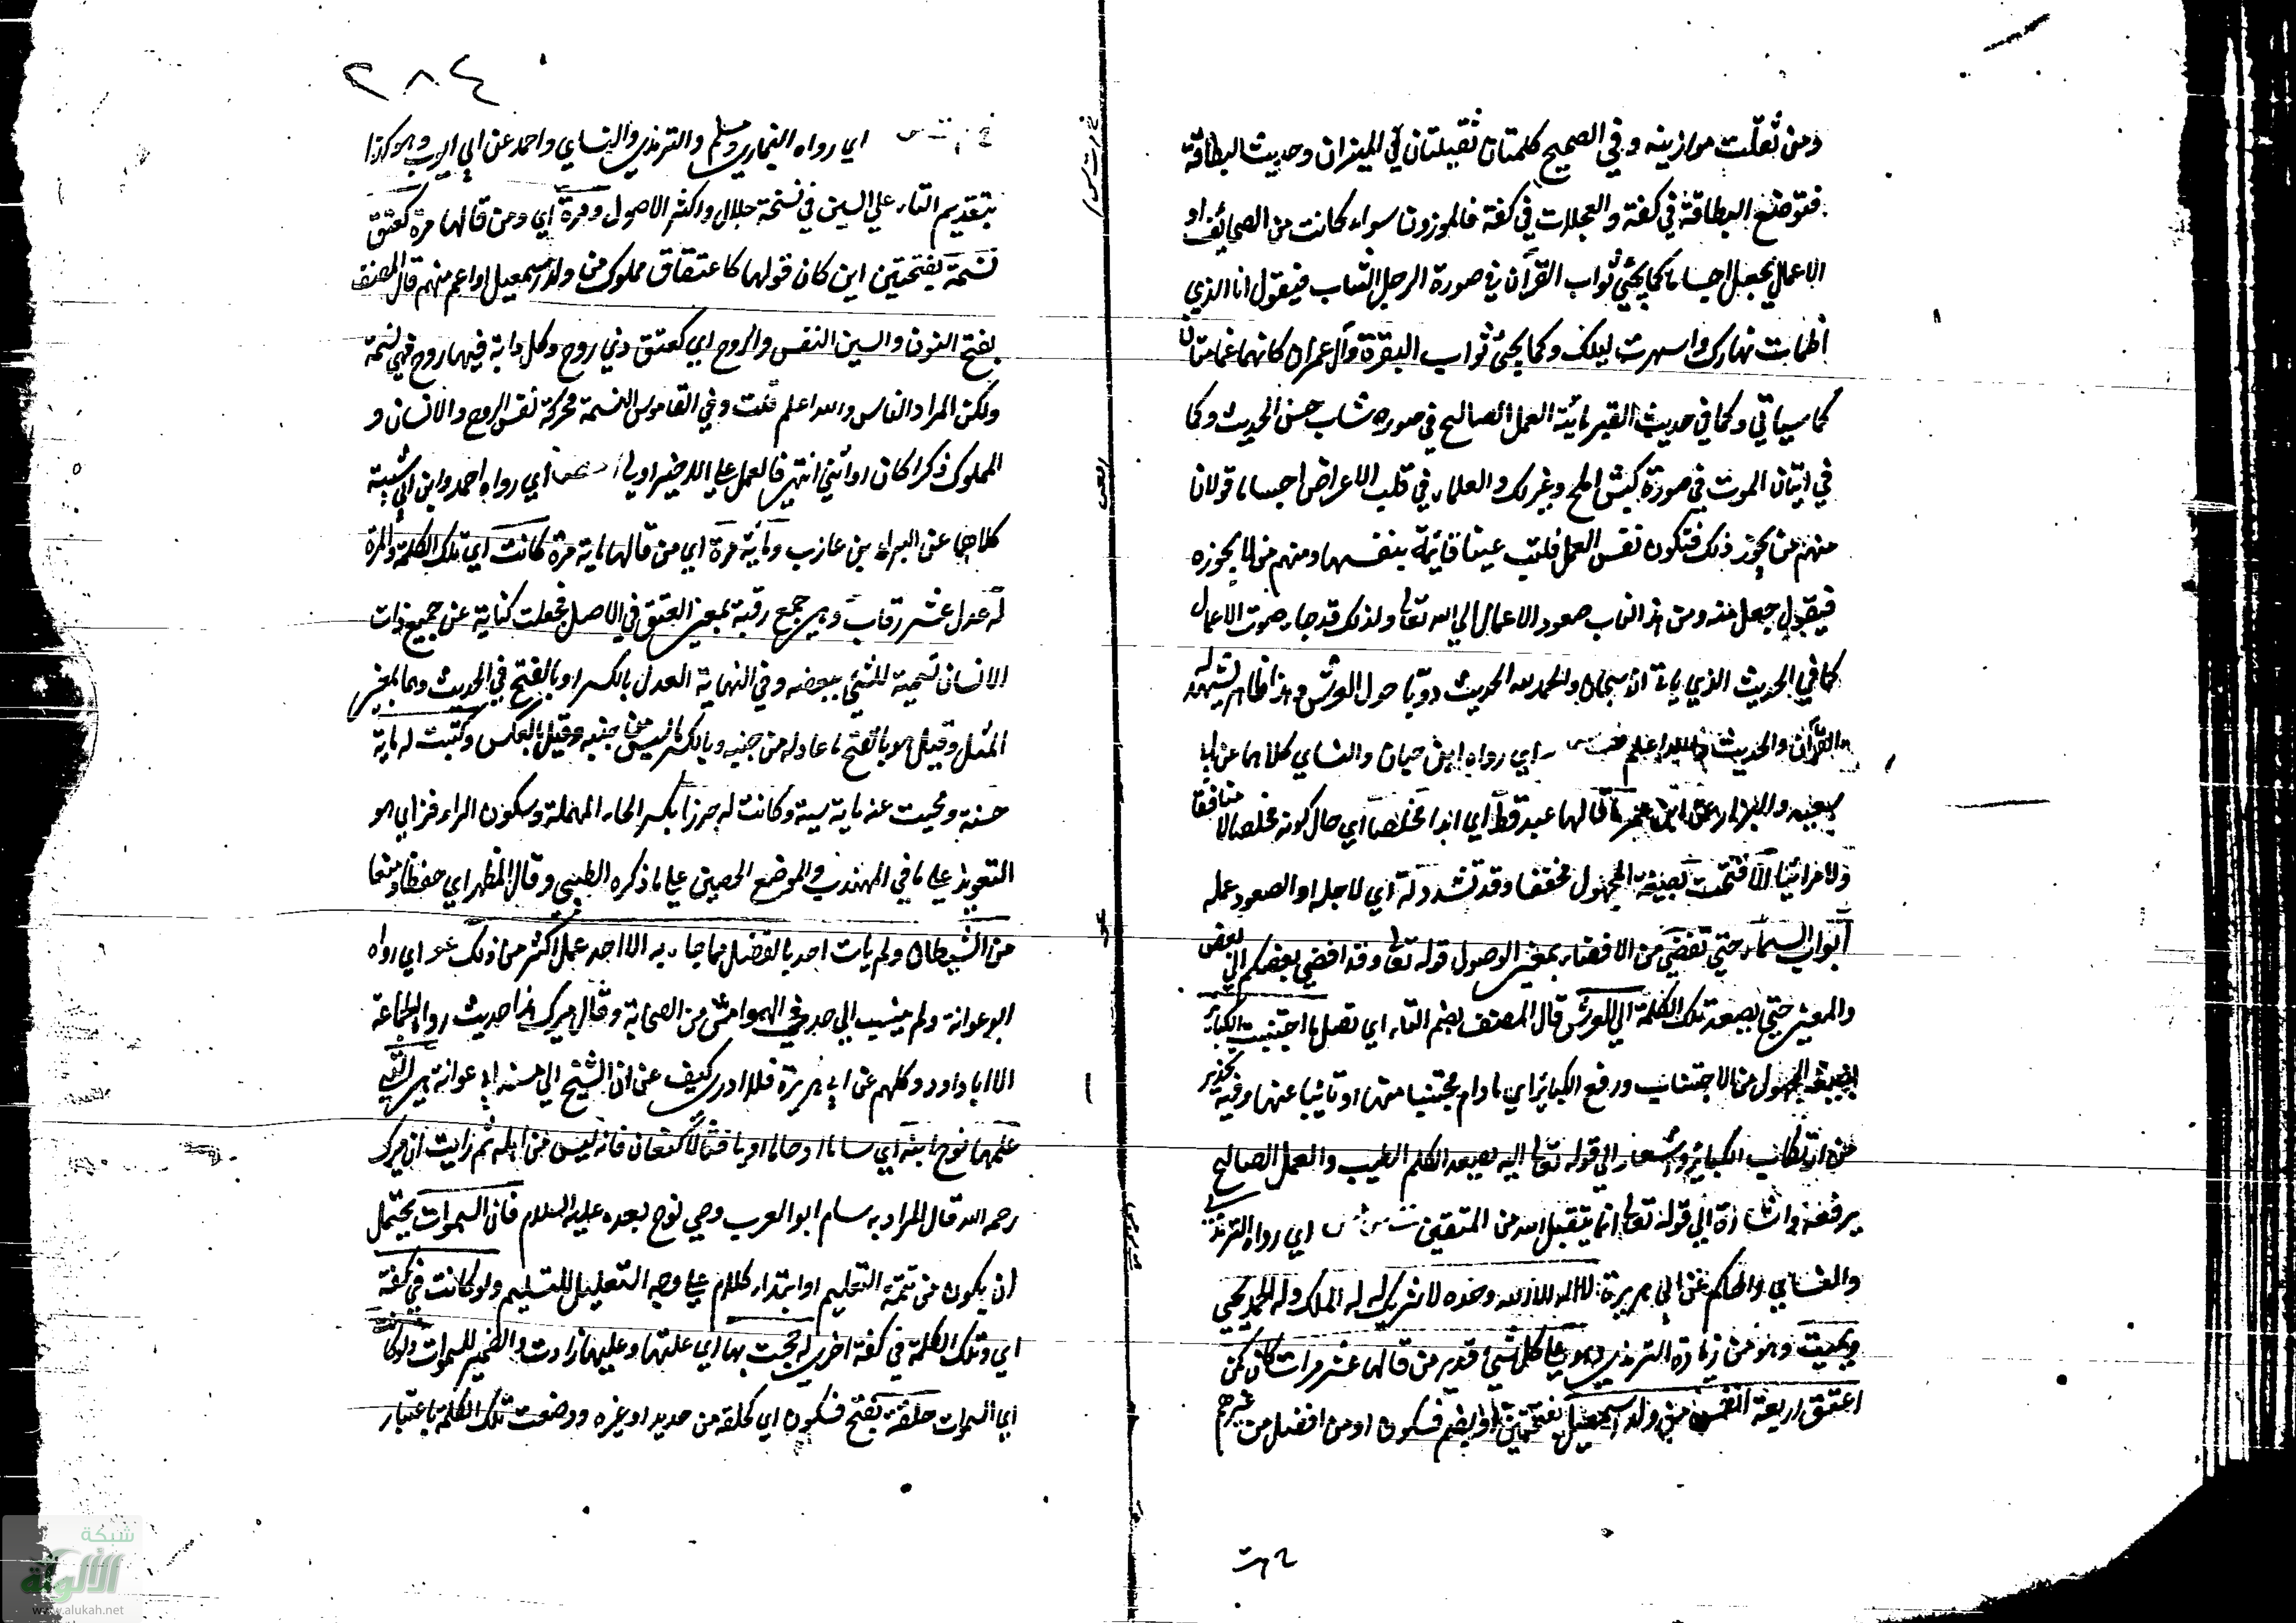 ومن ثقلت موازينه وفي الصحيح كلمتان ثقيلتان في الميزان وحديث البطاقة
فتوضع البطاقة في كفة والسجلات في كفة فالموزونا سواء كانت من الصحائف او
الاعمال يجعل اجساما كما يجئ ثواب القرآن في صورة الرجل الشاب فيقول انا الذي
اظمات نهارك واسهرت ليلك وكما يجئ ثواب البقرة وآل عمران كانهما غمامتان
كما سياتي وكما في حديث القبر ياتيه العمل الصالح في صورة شاب حسن الحديث وكما
في اتيان الموت في صورة كبش املح وغير ذلك والعلماء في قلب الاعراض اجساما قولان
منهم من يجوز ذلك فتكون نفس العمل قلبت عينا قائمة بنفسها ومنهم من لا يجوزه
فيقول جعل منه ومن هذا الباب صعود الاعمال الى الله تعالى ولذلك قد جاء صوت الاعمال
كما في الحديث الذي ياتي ان سبحان الله والحمد لله الحديث دويا حول العرش وهذا ظاهر يشهد له
القرآن والحديث والله اعلم اي رواه ابن حبان والنساي كلاهما عن ابي
سعيد والبزار عن ابن عمر ما قالها عبد قط اي ابدا مخلصا اي حال كونه مخلصا لا منافقا
ولا مرائيا الا فتحت بصيغة المجهول مخففا وقد تشدد له اي لاجله او لصعود عمله
ابواب السماء حتى تفضي من الافضاء بمعنى الوصول قوله تعالى وقد افضى بعضكم الى بعض
والمعنى حتى يصعد تلك الكلمة الى العرش قال المصنف بضم التاء اي تصل ما اجتنبت الكبائر
بصيغة المجهول من الاجتناب ورفع الكبائر اي ما دام مجتنبا منها او تائبا عنها وفيه تحذير
عن ارتكاب الكبائر واشعار الى قوله تعالى اليه يصعد الكلم الطيب والعمل الصالح
يرفعه واشارة الى قوله تعالى انما يتقبل الله من المتقين ت س مس اي رواه الترمذي
والنساي والحاكم عن ابي هريرة لا اله الا الله وحده لا شريك له له الملك وله الحمد يحيي
ويميت وهو من زيادة الترمذي وهو على كل شئ قدير من قالها عشر مرات كان كمن
اعتق اربعة انفس من ولد اسمعيل بفتحتين او بضم فسكون او من افضل من غيرهم
٢٨٤
خ م ت س اي رواه البخاري ومسلم والترمذي والنساي واحمد عن ابي ايوب وهو كذا
بتقديم التاء على السين في نسخة جلال واكثر الاصول ومرة اي ومن قالها مرة كعتق
نسمة بفتحتين اي كان قولها كاعتقاق مملوك من ولد اسمعيل او اعم منهم قال المصنف
بفتح النون والسين النفس والروح اي كعتق ذي روح وكل دابة فيها روح فهي نسمة
ولكن المراد الناس والله اعلم قلت وفي القاموس النسمة محركة نفس الروح والانسان و
المملوك ذكرا كان او انثى انتهى فالعمل على الاخير اولى اي رواه احمد وابن ابي شيبة
كلاهما عن البراء بن عازب ومائة مرة اي من قالها ماية مرة كانت اي تلك الكلمة والمرة
له عدل عشر رقاب وهي جمع رقبة بمعنى العتق في الاصل فجعلت كناية عن جميع ذات
الانسان تسمية للشئ ببعضه وفي النهاية العدل بالكسر او بالفتح في الحديث وهما بمعنى
المثل وقيل هو بالفتح ما عادله من جنسه وبالكسر ما ليس من جنسه وقيل بالعكس وكتبت له ماية
حسنة ومحيت عنه ماية سيئة وكانت له حرزا بكسر الحاء المهملة وسكون الراء فزاي هو
التعويذ على ما في المهذب والموضع الحصين على ما ذكره الطيبي وقال المظهر اي حفظا ومنعا
من الشيطان ولم يات احد بافضل مما جاء به الا احد عمل اكثر من ذلك عو اي رواه
ابو عوانة ولم ينسب الى احد في الهوامش من الصحابة وقال ميرك هذا حديث رواه الجماعة
الا ابا داود وكلهم عن ابي هريرة فلا ادري كيف عزى الشيخ الى مسند ابي عوانة هي التي
علمها نوح ابنه اي ساما او حاما او يافثا لا كنعان فانه ليس من اهله ثم رايت ان ميرك
رحمه الله قال المراد به سام ابو العرب وصي نوح بعده عليه السلام فان السموات يحتمل
ان يكون من تتمة التعليم او ابتداء كلام على وجه التعليل للتسليم ولو كانت في كفة
اي وتلك الكلمة في كفة اخرى لرجحت بها اي غلبتها وعليها زادت والضمير للسموات ولو كانت
اي السموات حلقة بفتح فسكون اي كحلقة من حديد او غيره ووضعت تلك الكلمة باعتبار
شبكة
الألوكة
www.alukah.net